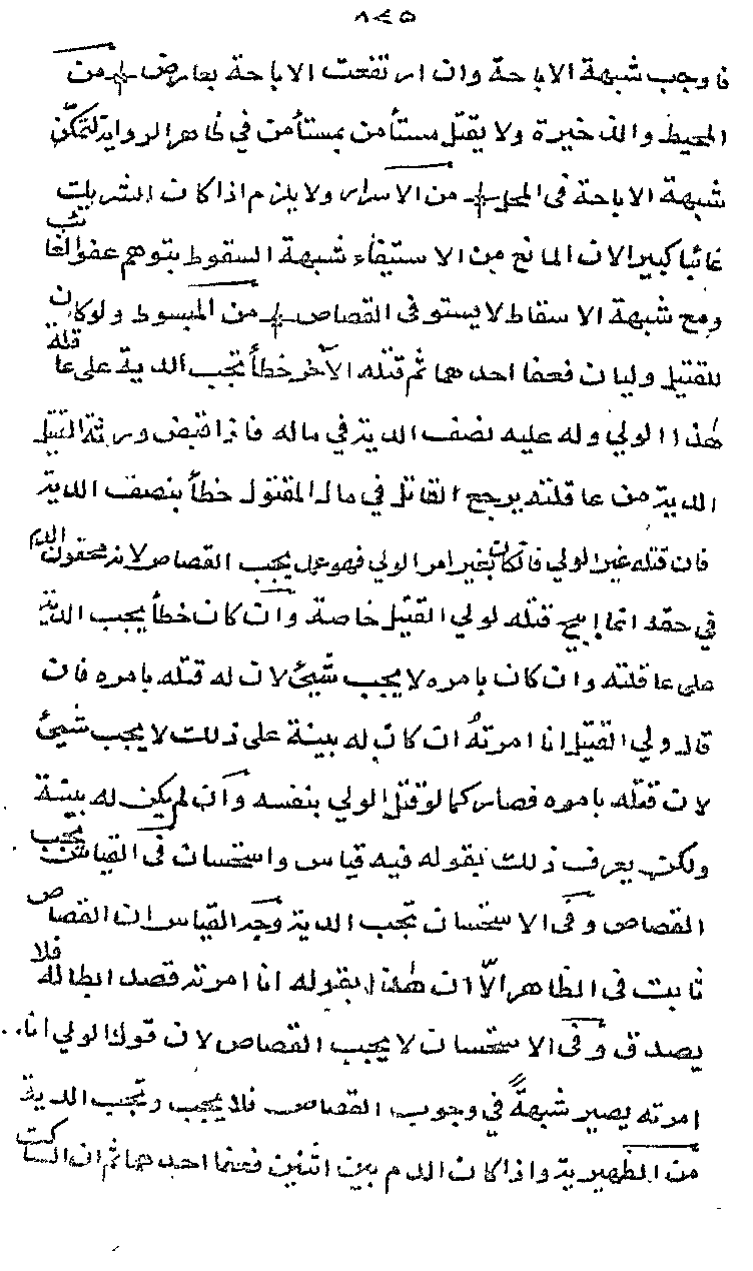 ٨٢٥
فاوجب شبهة الاباحة وان ارتفعت الاباحة بعارض من
المحيط والذخيرة ولا يقتل مستأمن بمستأمن في ظاهر الرواية لتمكّن
شبهة الاباحة فى المحل من الاسرار ولا يلزم اذا كان الشريك
غائبا كبيرا لان المانع من الاستيفاء شبهة السقوط بتوهم عفو الغائب
ومع شبهة الاسقاط لا يستوفى القصاص من المبسوط ولو كان
للقتيل وليان فعفا احدهما ثم قتله الآخر خطأ تجب الدية على عاقلة
هذا الولي وله عليه نصف الدية في ماله فاذا قبض ورثة القتيل
الدية من عاقلته يرجع القاتل في مال المقتول خطأ بنصف الدية
فان قتله غير الولي فان كان بغير امر الولي فهو عمد يجب القصاص لانه محقون الدم
في حقه انما ابيح قتله لولي القتيل خاصة وان كان خطأ يجب الدية
على عاقلته وان كان بامره لا يجب شيئ لان له قتله بامره فان
قال ولي القتيل انا امرتهُ ان كان له بينة على ذلك لا يجب شيئ
لان قتله بامره فصار كما لو قتل الولي بنفسه وان لم يكن له بينة
ولكن يعرف ذلك بقوله فيه قياس واستحسان فى القياس يجب
القصاص وفى الاستحسان تجب الدية وجه القياس ان القصاص
ثابت فى الظاهر الّا ان هذا بقوله انا امرته قصد ابطاله فلا
يصدق وفى الاستحسان لا يجب القصاص لان قول الولي انا
امرته يصير شبهةً في وجوب القصاص فلا يجب وتجب الدية
من الظهيرية واذا كان الدم بين اثنين فعفا احدهما ثم ان الساكت